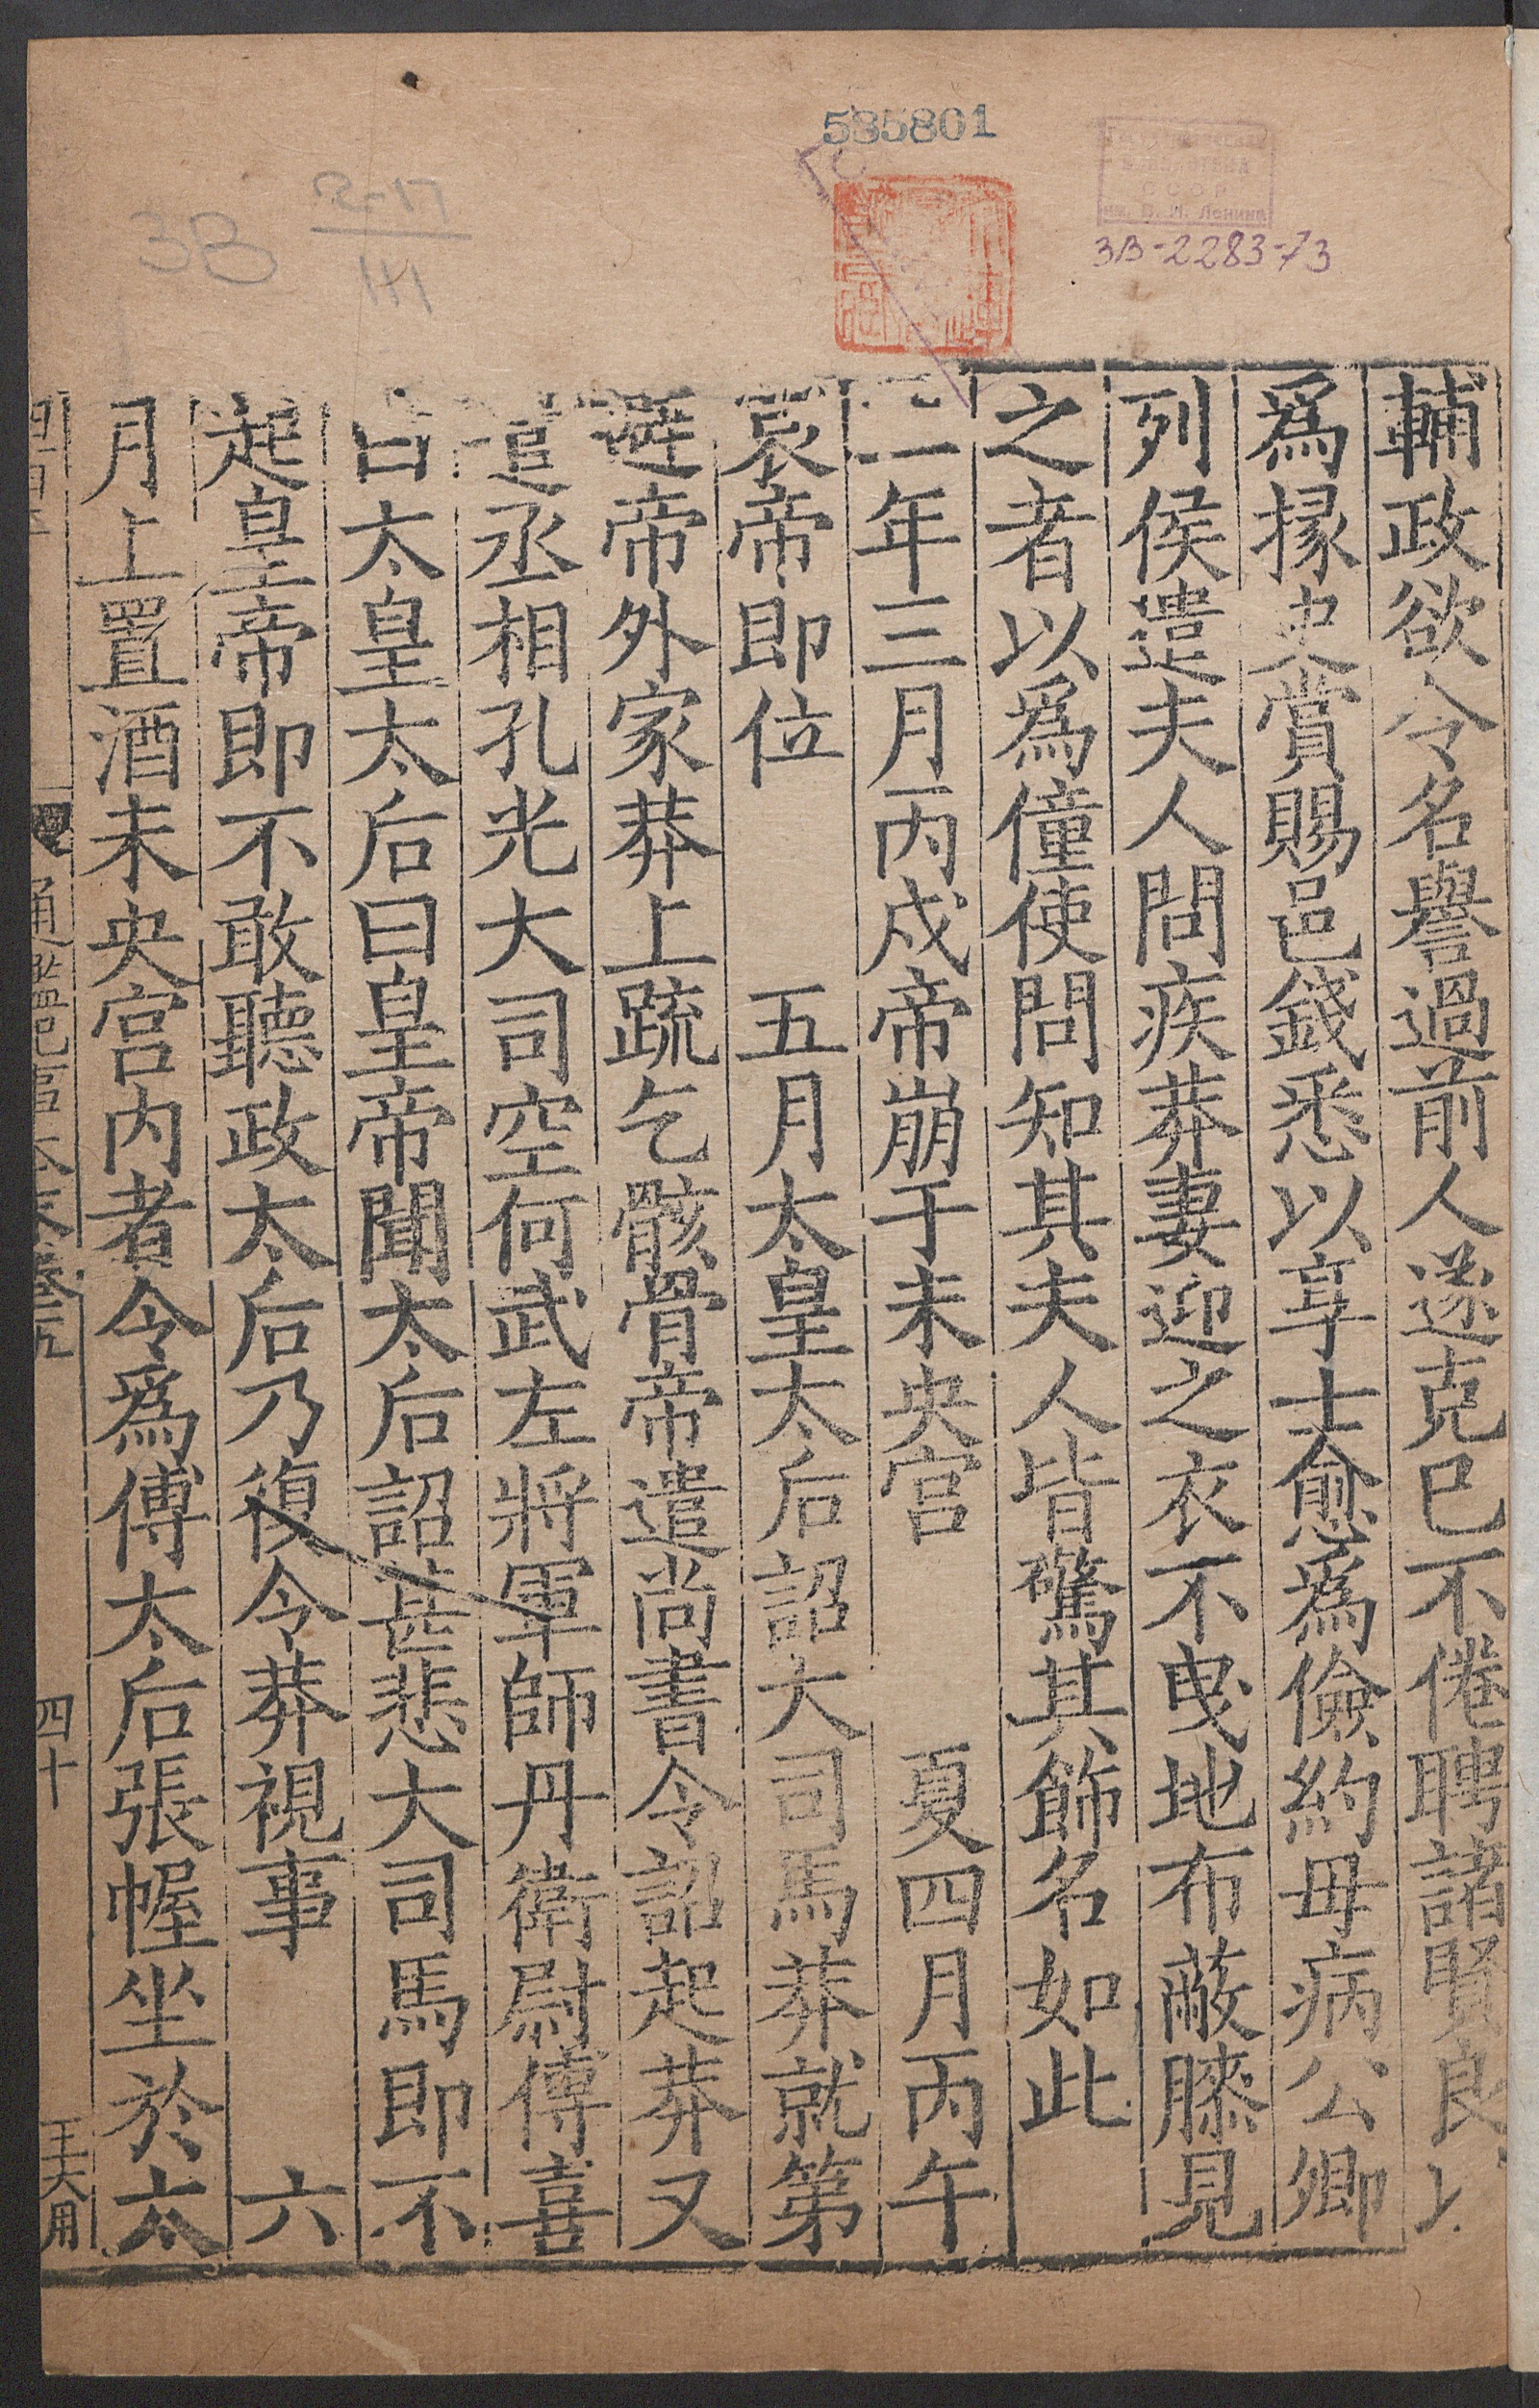 535801
3В-2283-73
3В
2-17
111
輔政欲令名譽過前人遂克已不倦聘諸賢良以
爲掾史賞賜邑錢悉以享士愈爲儉約毋病公卿
列侯遣夫人問疾莽妻迎之衣不曳地布蔽膝見
之者以爲僮使問知其夫人皆驚其飾名如此
二年三月丙戍帝崩于未央宮 夏四月丙午
哀帝即位 五月太皇太后詔大司馬莽就第
避帝外家莽上疏乞骸骨帝遣尚書令詔起莽又
遣丞相孔光大司空何武左將軍師丹衛尉傅喜
白太皇太后曰皇帝聞太后詔甚悲大司馬即不
起皇帝即不敢聽政太后乃復令莽視事 六
月上置酒未央宮內者令爲傅太后張幄坐於太
通鑑紀事本末卷五 四十 王大用